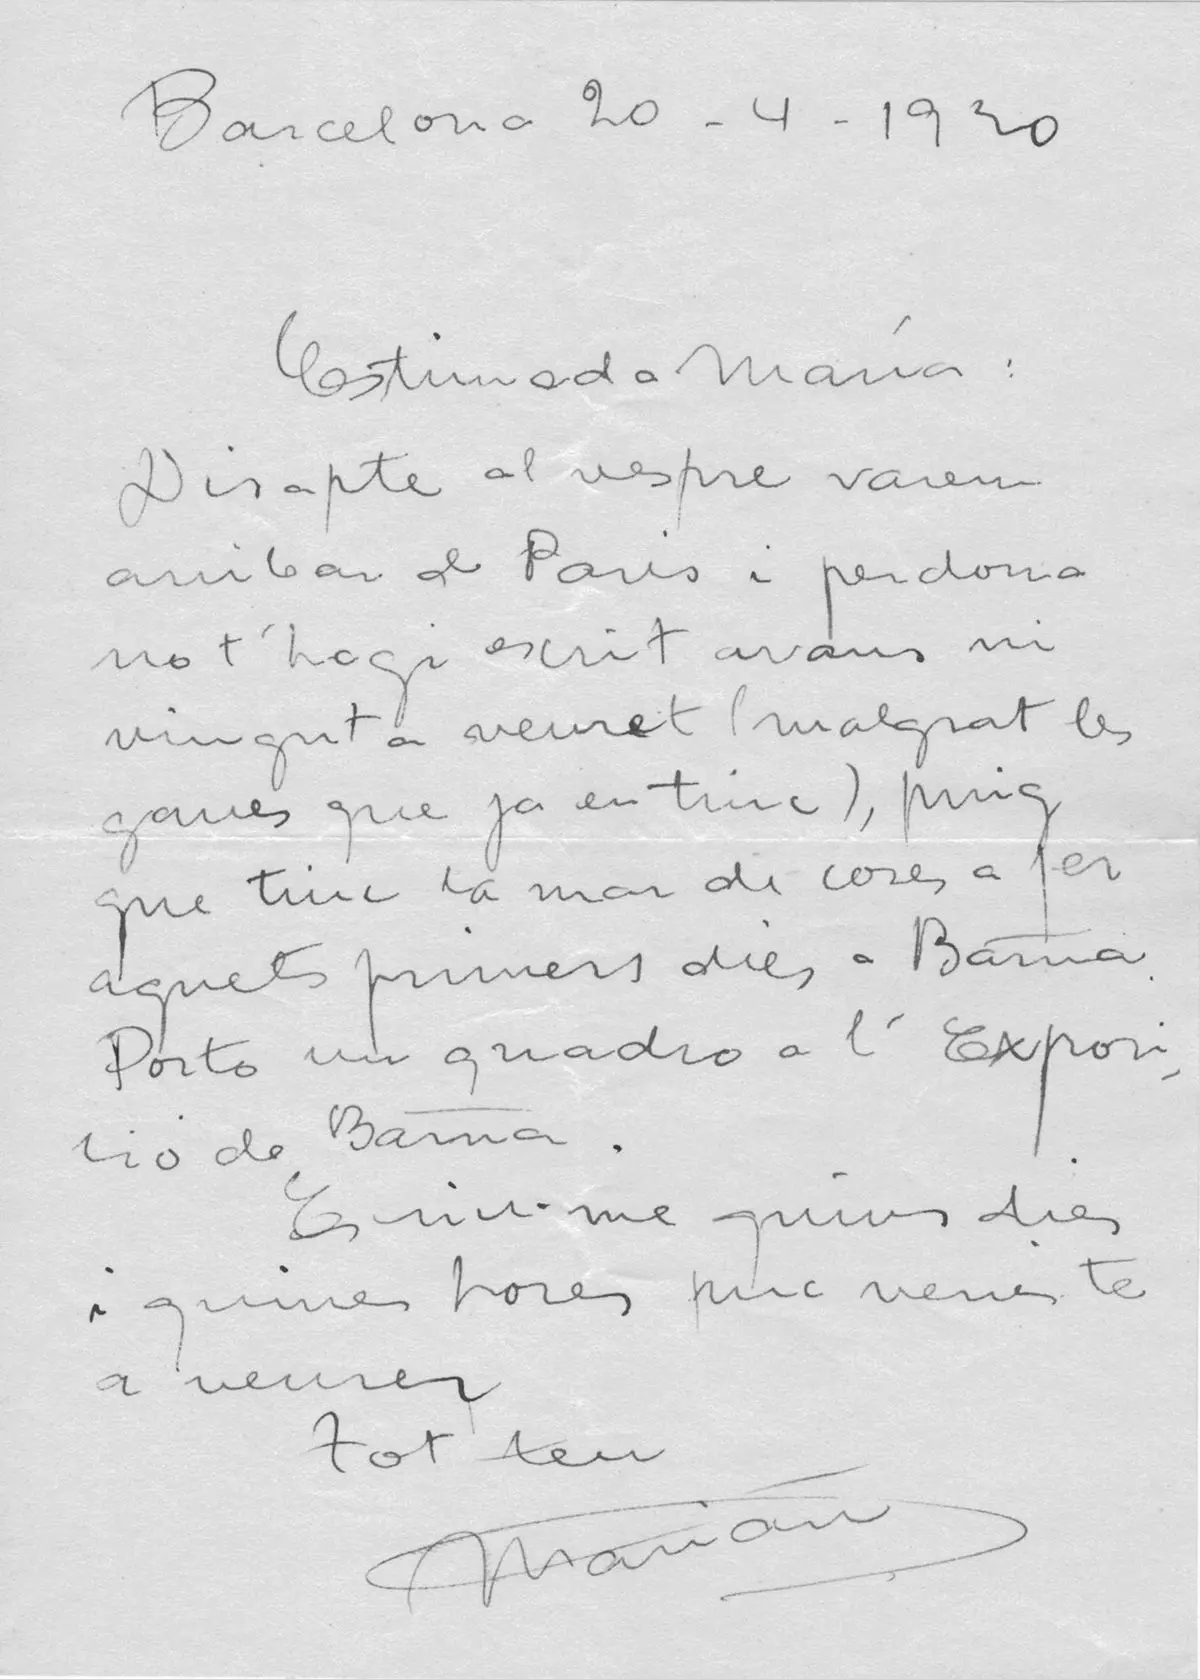 Barcelona 20 - 4 - 1930
Estimada María :
Disapte al vespre varem
arribar de Paris i perdona
no t'hagi escrit avans ni
vingut a veuret (malgrat les
ganes que ja en tinc), puig
que tinc la mar de coses a fer
aquets primers dies a Barna.
Porto un quadro a l'Exposi-
ció de Barna.
Escriu-me quins dies
i quines hores puc venir-te
a veurer
Tot teu
Marián